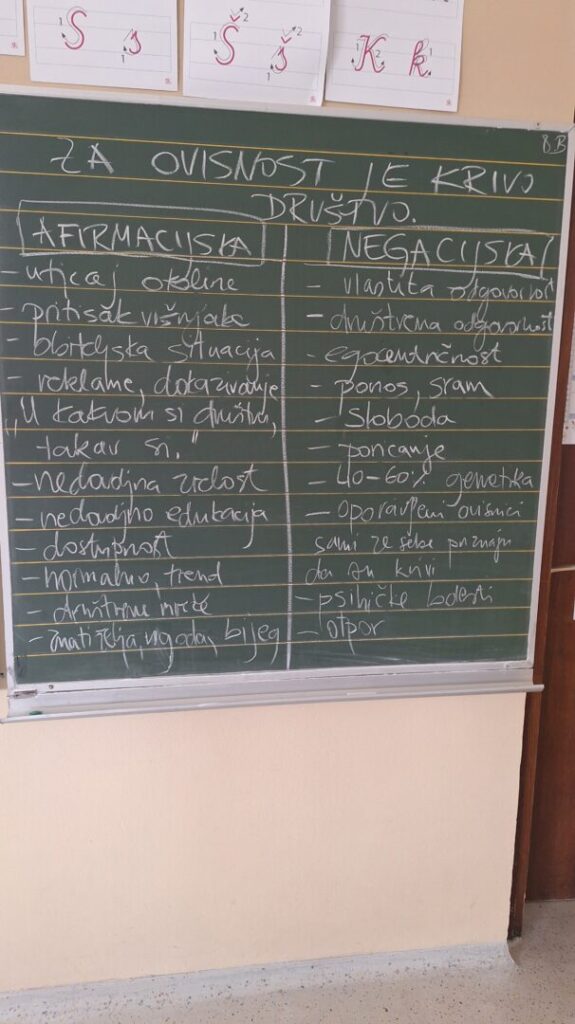 S s
Š š
K k
8.B
ZA OVISNOST JE KRIVO
DRUŠTVO.
AFIRMACIJSKA
- utjecaj okoline
- pritisak vršnjaka
- obiteljska situacija
- reklame, dokazivanje
"U kakvom si društvu,
takav si."
- nedovoljna zrelost
- nedovoljno edukacija
- dostupnost
- normalno, trend
- društvene mreže
- znatiželja, ugoda, bijeg
NEGACIJSKA
- vlastita odgovornost
- društvena odgovornost
- egocentričnost
- ponos, sram
- sloboda
- poricanje
- 40-60% genetika
- oporavljeni ovisnici
sami ze sebe priznaju
da su krivi
- psihičke bolesti
- otpor